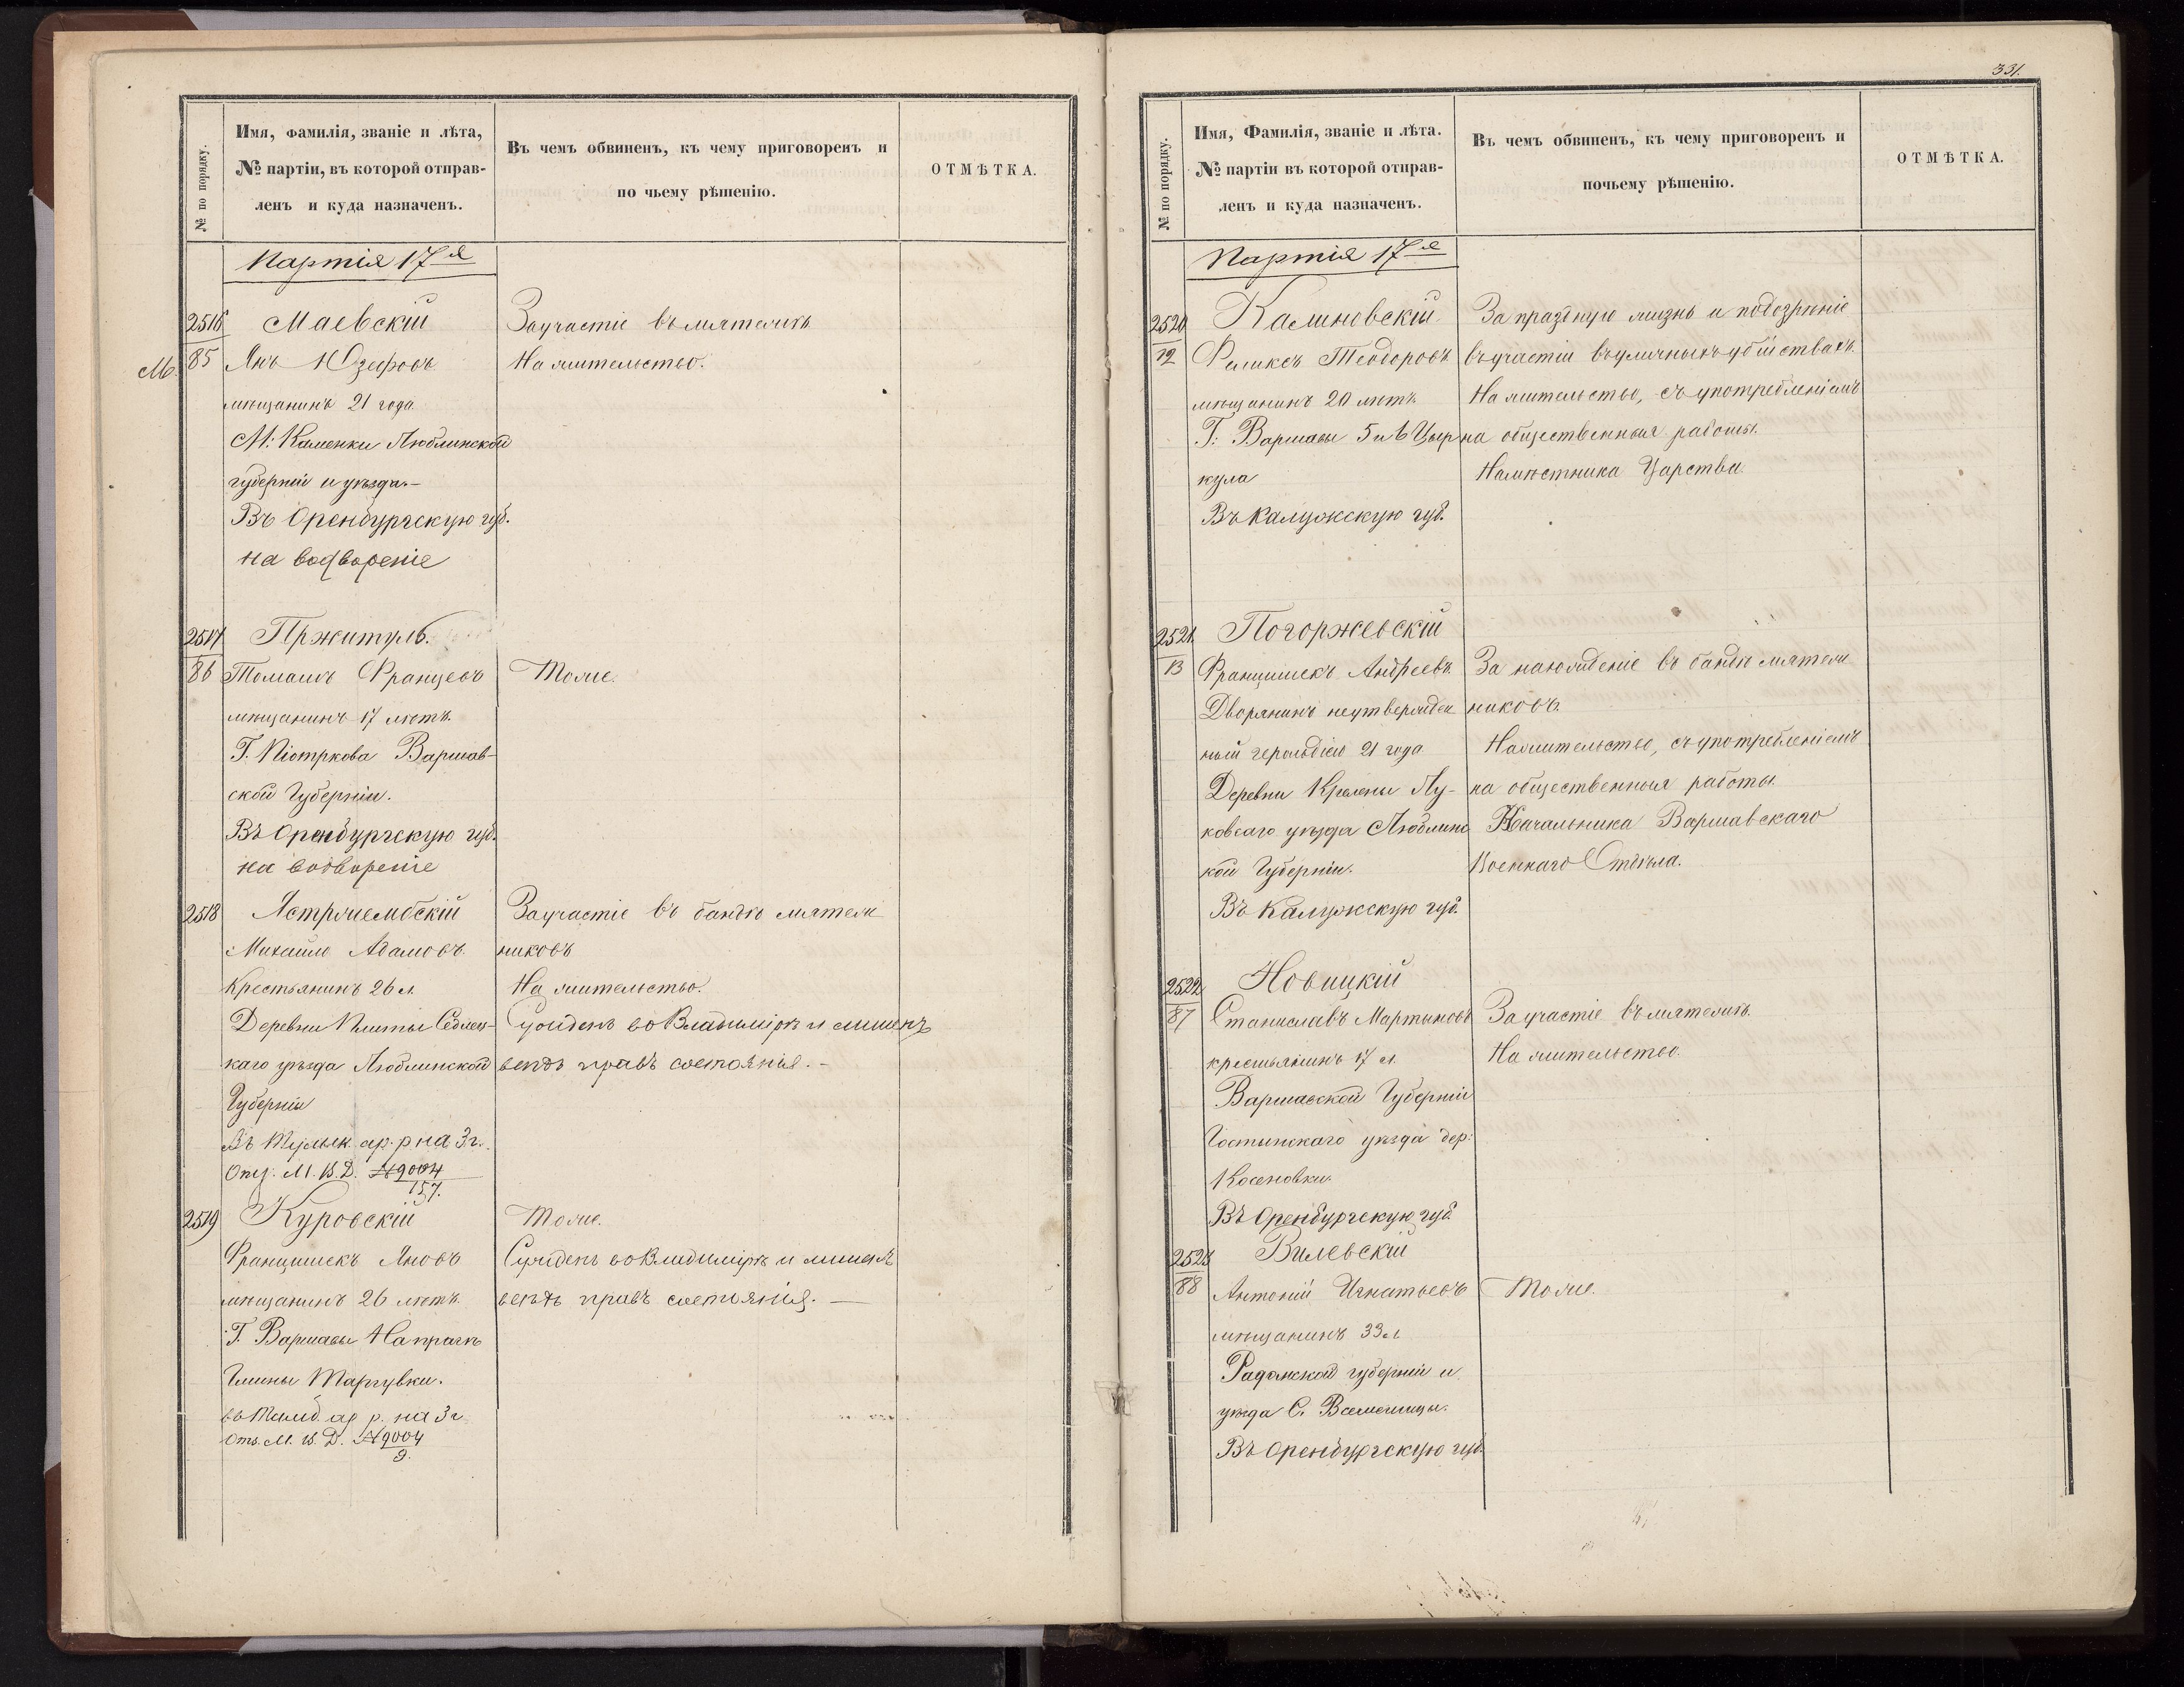 № по порядку.
Имя, фамилія, званіе и лѣта,
№ партіи, въ которой отправ-
ленъ и куда назначенъ.
Въ чемъ обвиненъ, къ чему приговоренъ и
по чьему рѣшенію.
ОТМѢТКА.
Партія 17я
2516
85
М.
Маевскій
Янъ Юзефовъ
мѣщанинъ 21 года
М: Каменки Люблинской
губерніи и уѣзда.—
Въ Оренбургскую губ.
на водвореніе
За участіе въ мятежѣ
На жительство.
2517
86
Пржитулъ.
Томашъ Францевъ
мѣщанинъ 17 лѣтъ.
Г. Піотркова Варшав-
ской Губерніи.
Въ Оренбургскую губ.
на водвореніе
Тоже.
2518
Ястржембскій
Михаило Адамовъ.
Крестьянинъ 26 л.
Деревни Седлец-
каго уѣзда Люблинской
Губерніи
ар. р на 3 г.
М. В. Д. №9004
157.
За участіе въ бандѣ мятеж
никовъ
На жительство.
Сужденъ во Владимірѣ и лишенъ
всѣхъ правъ состоянія.—
2519
Куровскій
Францишекъ Яновъ
мѣщанинъ 26 лѣтъ.
Г. Варшавы На прагѣ
Гмины Таргувки.
ар р. на 3 г
Отз. М. В. Д. №9004
9.
Тоже.
Сужденъ во Владимірѣ и лишенъ
всѣхъ правъ состоянія.—
331.
№ по порядку.
Имя, Фамилія, званіе и лѣта.
№ партіи въ которой отправ-
ленъ и куда назначенъ.
Въ чемъ обвиненъ, къ чему приговоренъ и
почьему рѣшенію.
ОТМѢТКА.
Партія 17я
2520
12
Калиновскій.
Феликсъ Теодоровъ
мѣщанинъ 20 лѣтъ.
Г: Варшавы 5 и 6 Цыр
кула
Въ Калужскую губ.
За праздную жизнь и подозрѣніе
въ участіи въ уличныхъ убійствахъ.
На жительство, съ употребленіемъ
на общественныя работы.
Намѣстника Царства
2521
13
Погоржевскій
Францишекъ Андреевъ.
Дворянинъ неутвержден
ный герольдіею 21 года
Деревни Лу-
ковскаго уѣзда Люблинс
кой Губерніи.
Въ Калужскую губ.
За нахожденіе въ бандѣ мятеж
никовъ.
На жительство, съ употребленіемъ
на общественныя работы.
Начальника Варшавскаго
Военнаго Отдѣла.
2522
87
Новицкій
Станиславъ Мартыновъ
крестьянинъ 17 л.
Варшавской Губерніи
Гостынскаго уѣзда дер:
Косеновки.
Въ Оренбургскую губ.
За участіе въ мятежѣ.
На жительство.
2523
88
Вилевскій
Антоній Игнатьевъ
мѣщанинъ 33 л
Радомской губерніи и
уѣзда С.
Въ Оренбургскую губ.
Тоже.